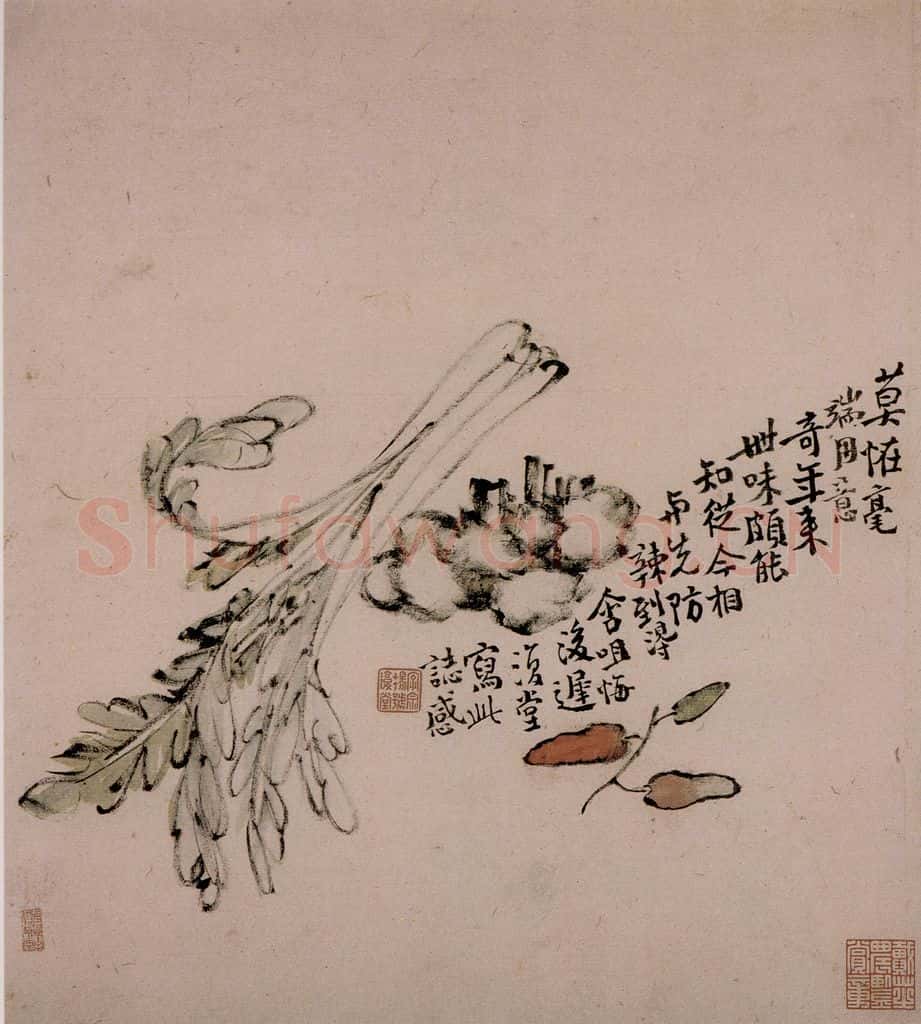 莫恠毫
端用意
奇年来
世味頗能
知從今相
与先防
辣到淂
含咀悔
後遲
復堂
寫此
誌感
Shufawang.CN